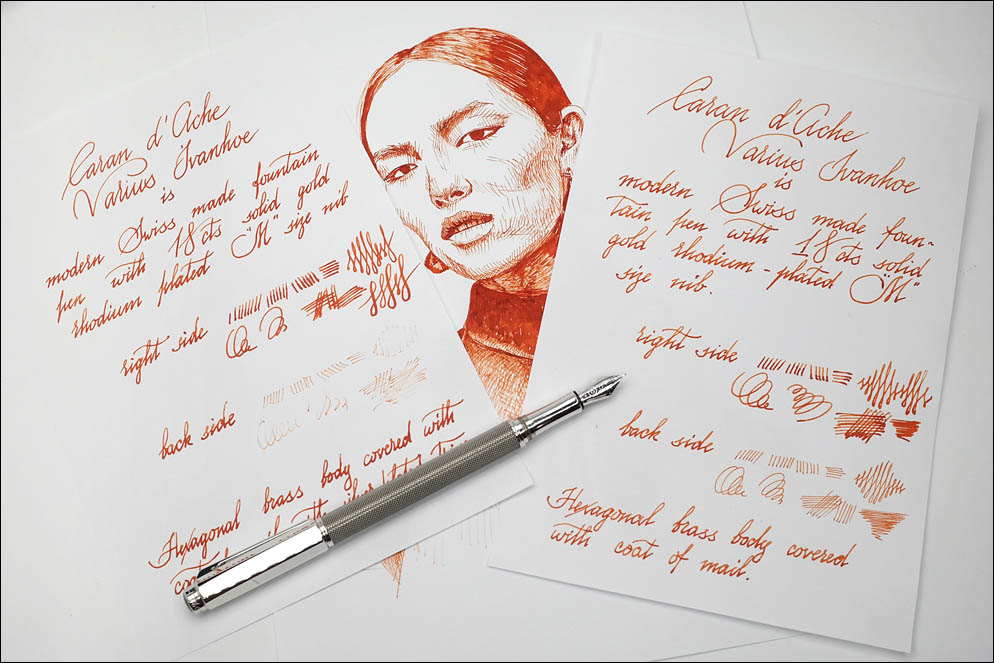 Caran d'Ache
Varius Ivanhoe
is
modern Swiss made fountain
pen with 18 cts solid gold
rhodium plated "M" size nib
right side
back side
Hexagonal brass body covered with
Caran d'Ache
Varius Ivanhoe
is
modern Swiss made foun-
tain pen with 18 cts solid
gold rhodium-plated "M"
size nib.
right side
back side
Hexagonal brass body covered
with coat of mail.